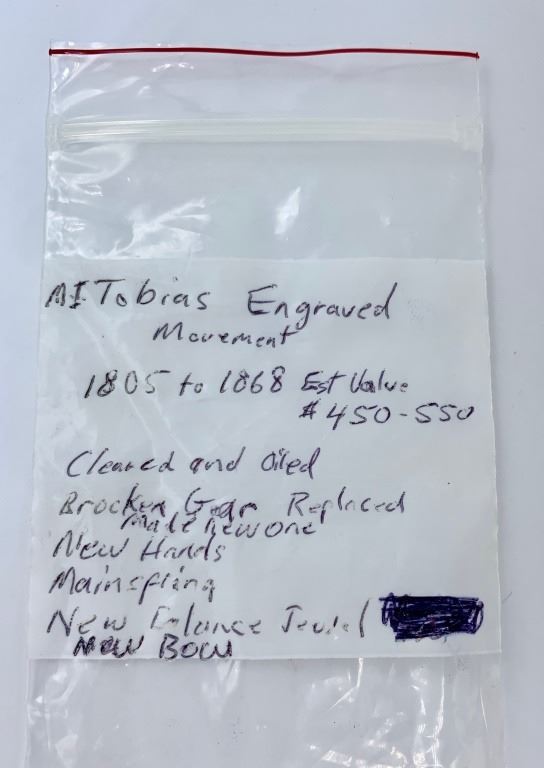 MI Tobias Engraved
Movement
1805 to 1868 Est Value
$450-550
Cleaned and Oiled
Brocken Gear Replaced
Made new one
New Hands
Mainspring
New Balance Jewel
New Bow